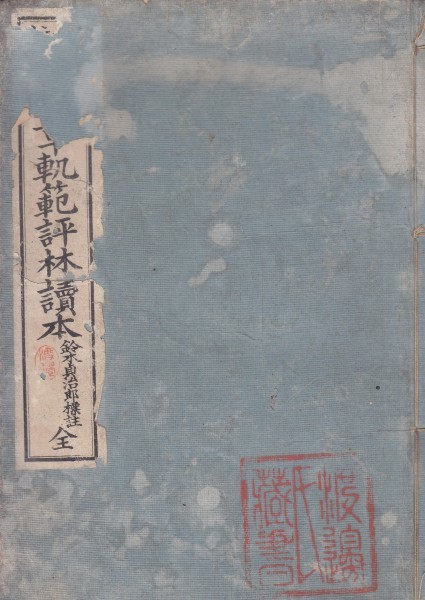 軌範評林讀本
鈴木貞治郎標註
全
渡邊
氏
藏書